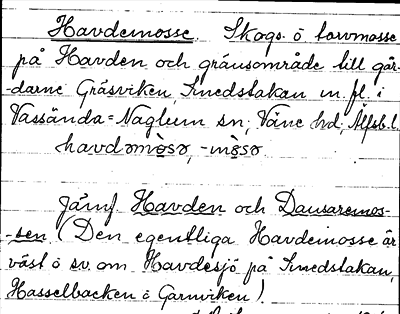 Havdemosse. Skogs- o torvmosse
på Havden och gränsområde till går-
-darne Gräsviken, Smedstakan m. fl. i
Vassända=Naglum sn, Väne hd, Älfsb. l.
havdəmòsə, -mòsə
Jämf Havden och Dansaremos-
-sen (Den egentliga Havdemosse är
väst o sv. om Havdesjö på Smedstakan,
Hasselbacken o Garnviken)